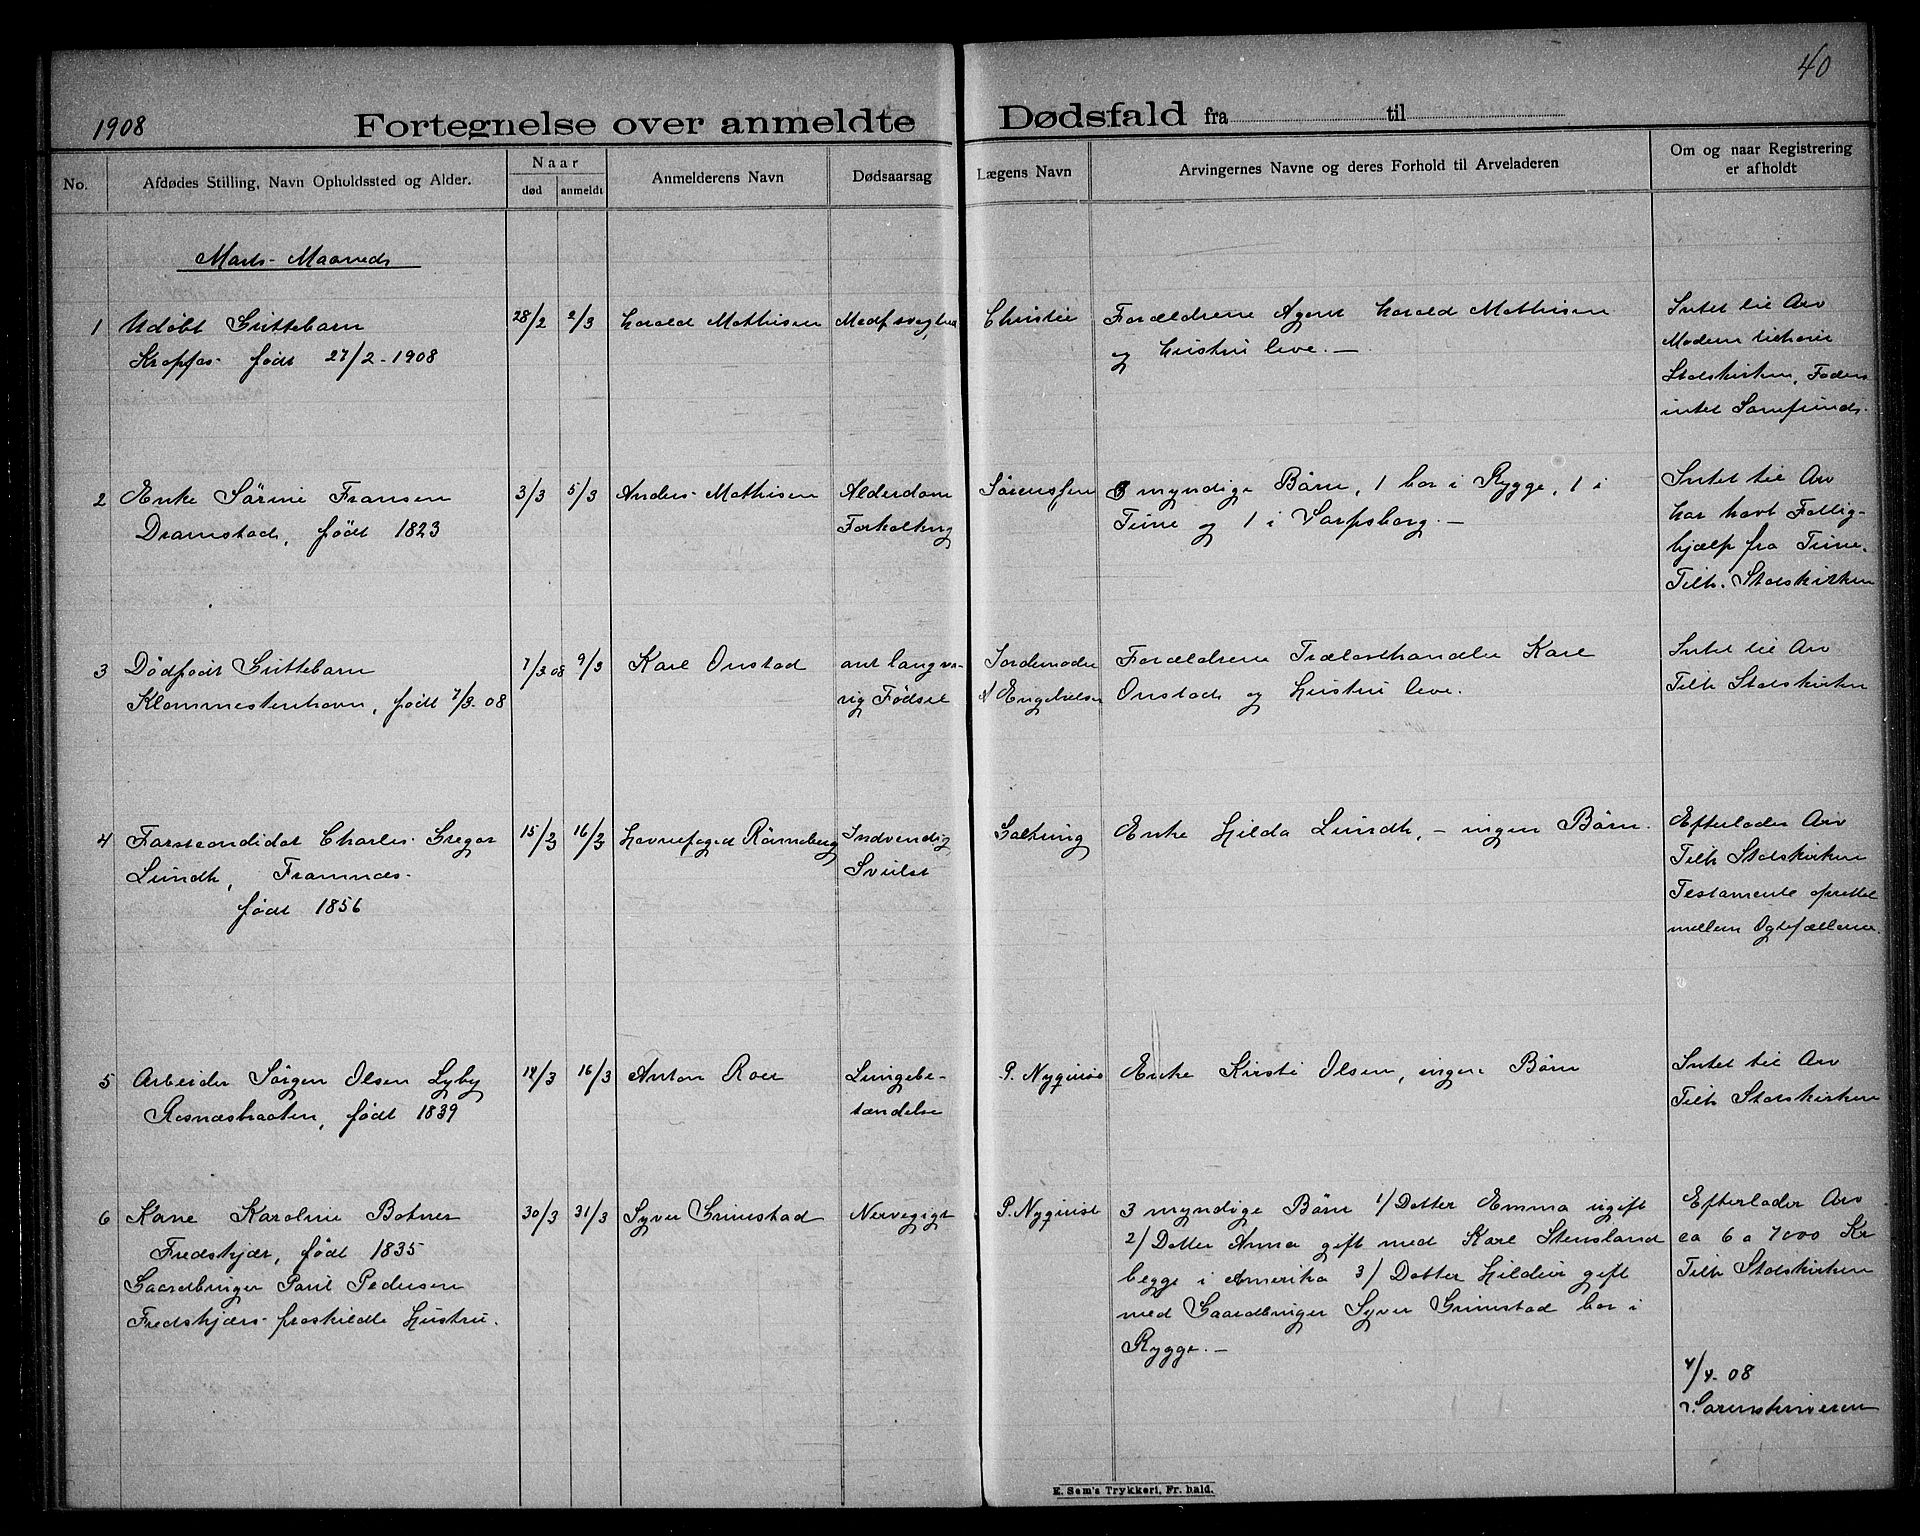 40
1908 Fortegnelse over anmeldte Dødsfald fra til
No. Afdødes Stilling, Navn Opholdssted og Alder. Naar død anmeldt Anmelderens Navn Dødsaarsag Lægens Navn Arvingernes Navne og deres Forhold til Arveladeren Om og naar Registrering er afholdt
Marts Maaned
1 Udøbt Guttebarn 28/2 2/3 Harald Mathisen Christie Forældrene Agent Harald Mathisen Intet til Arv
født 27/2-1908 og Hustru leve. — Modern tilhører
Statskirken, Faderen
intet Samfund.
2 Enke Sørine Fransen 3/3 5/3 Anders Mathisen Alderdom Sørenssen 3 myndige Børn, 1 bor i Rygge, 1 i Intet til Arv
Dramstad, født 1823 Forkalkng Tune og 1 i Sarpsborg. — har havt Fattig-
hjælp fra Tune.
Tilh. Statskirken
3 Dødfødt Guttebarn 7/3 08 9/3 Karl Onstad ant langva- Jordemoder Forældrene Trælasthandler Karl Intet til Arv
Klommestenhavn, født 7/3-08 rig Fødsel Engebretsen Onstad og Hustru leve. Tilh Statskirken
4 Forstcandidat Charles Gregor 15/3 16/3 Havnefoged Rønneberg Indvendig Galtung Enke Hilda Lundh, — ingen Børn. Efterlader Arv
Lundh, Framnæs Svulst Tilh Statskirken
født 1856 Testamente oprettet
mellem Ægtefællerne.
5 Arbeider Jørgen Olsen Lyby 14/3 16/3 Anton Roer Lungebe- P. Nyquist Enke Kirsti Olsen, ingen Børn Intet til Arv
Rosnæstraaten, født 1839 tændelse Tilh Statskirken
6 Kone Karoline Botner 30/3 31/3 Syver Grimstad Nervegigt P. Nyquist 3 myndige Børn 1/ Datter Emma ugift Efterlader Arv
Fredskjær, født 1835 2/ Datter Anna gift med Karl Stensland ca 6 a 7000 Kr
Gaardbruger Paul Pedersen begge i Amerika 3/ Datter Hildur gift Tilh Statskirken
Fredskjærs fraskildte Hustru. med Gaardbruger Syver Grimstad bor i
Rygge. —
4/4-08
Sorenskriveren
E. Sem's Trykkeri, Fr.hald.